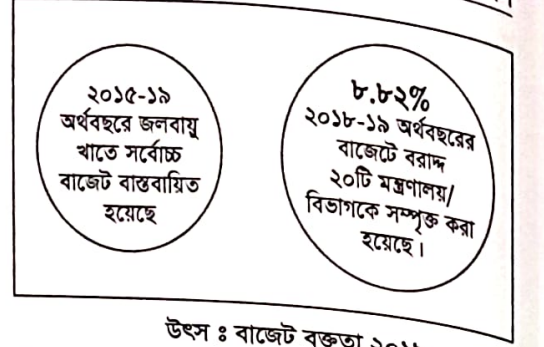 ২০১৫-১৯
অর্থবছরে জলবায়ু
খাতে সর্বোচ্চ
বাজেট বাস্তবায়িত
হয়েছে
৮.৮২%
২০১৮-১৯ অর্থবছরের
বাজেটে বরাদ্দ
২০টি মন্ত্রণালয়/
বিভাগকে সম্পৃক্ত করা
হয়েছে।
উৎস : বাজেট বক্তৃতা